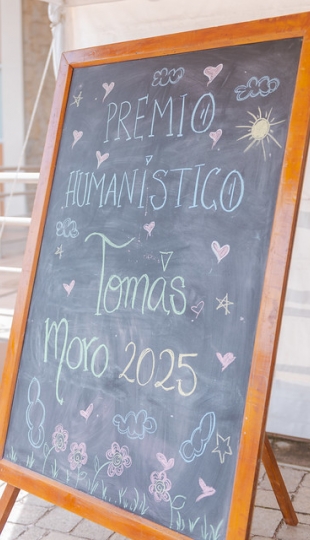 PREMIO
HUMANÍSTICO
Tomás
Moro 2025